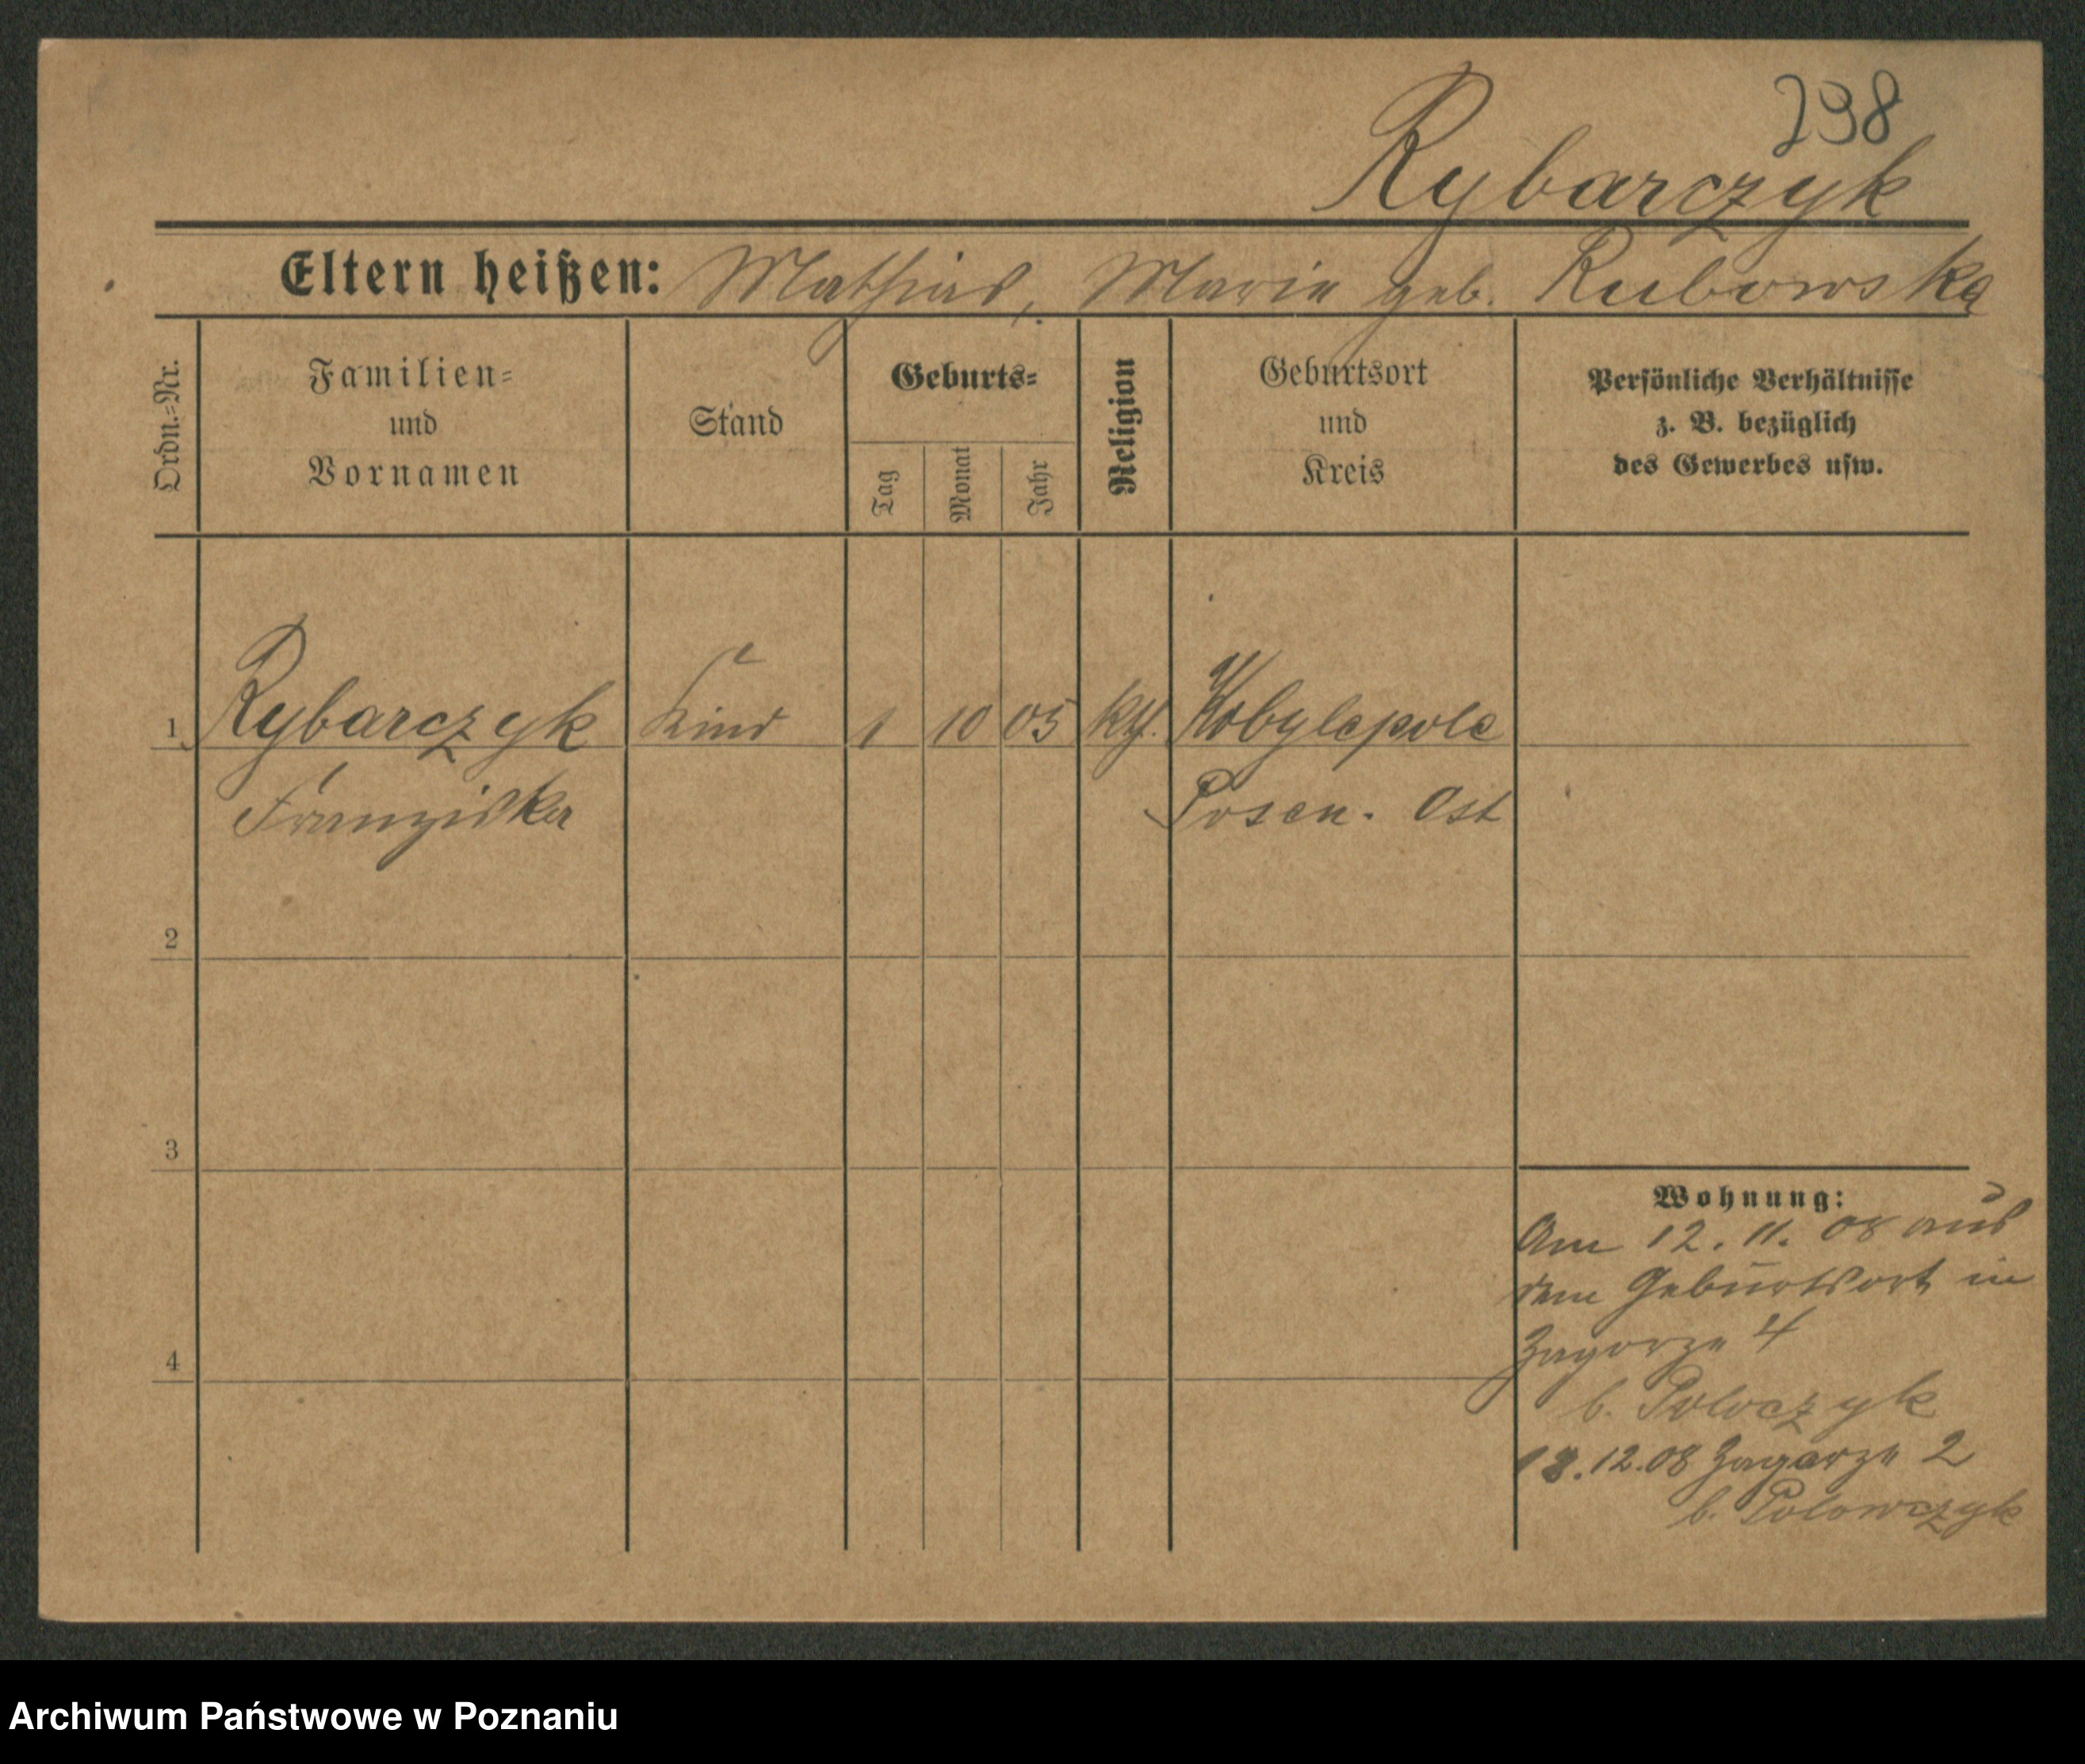 298
Rybarczyk
Eltern heißen: Mathias, Marie geb. Rubowska
Ordn.-Nr.
Familien-
und
Vornamen
Stand
Geburts-
Tag
Monat
Jahr
Religion
Geburtsort
und
Kreis
Persönliche Verhältnisse
z. B. bezüglich
des Gewerbes usw.
1 Rybarczyk Kind 1 10 05 kth. Kobylepole
Franziska Posen. Ost
2
3
4
Wohnung:
Am 12. 11. 08 aus
dem Geburtsort in
Zagorze 4
b. Poloczyk
18.12.08 Zagorze 2
b. Polowczyk
Archiwum Państwowe w Poznaniu